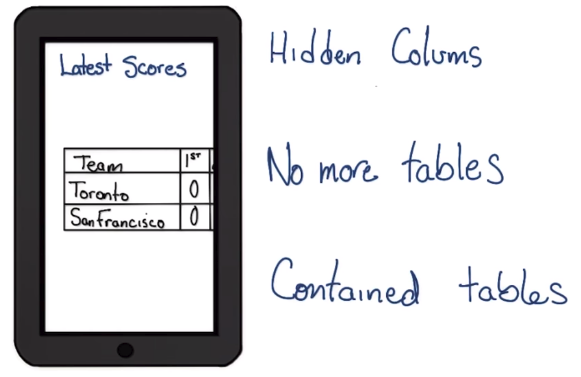 Latest Scores
Team 1ST
Toronto 0
San Francisco 0
Hidden Colums
No more tables
Contained tables